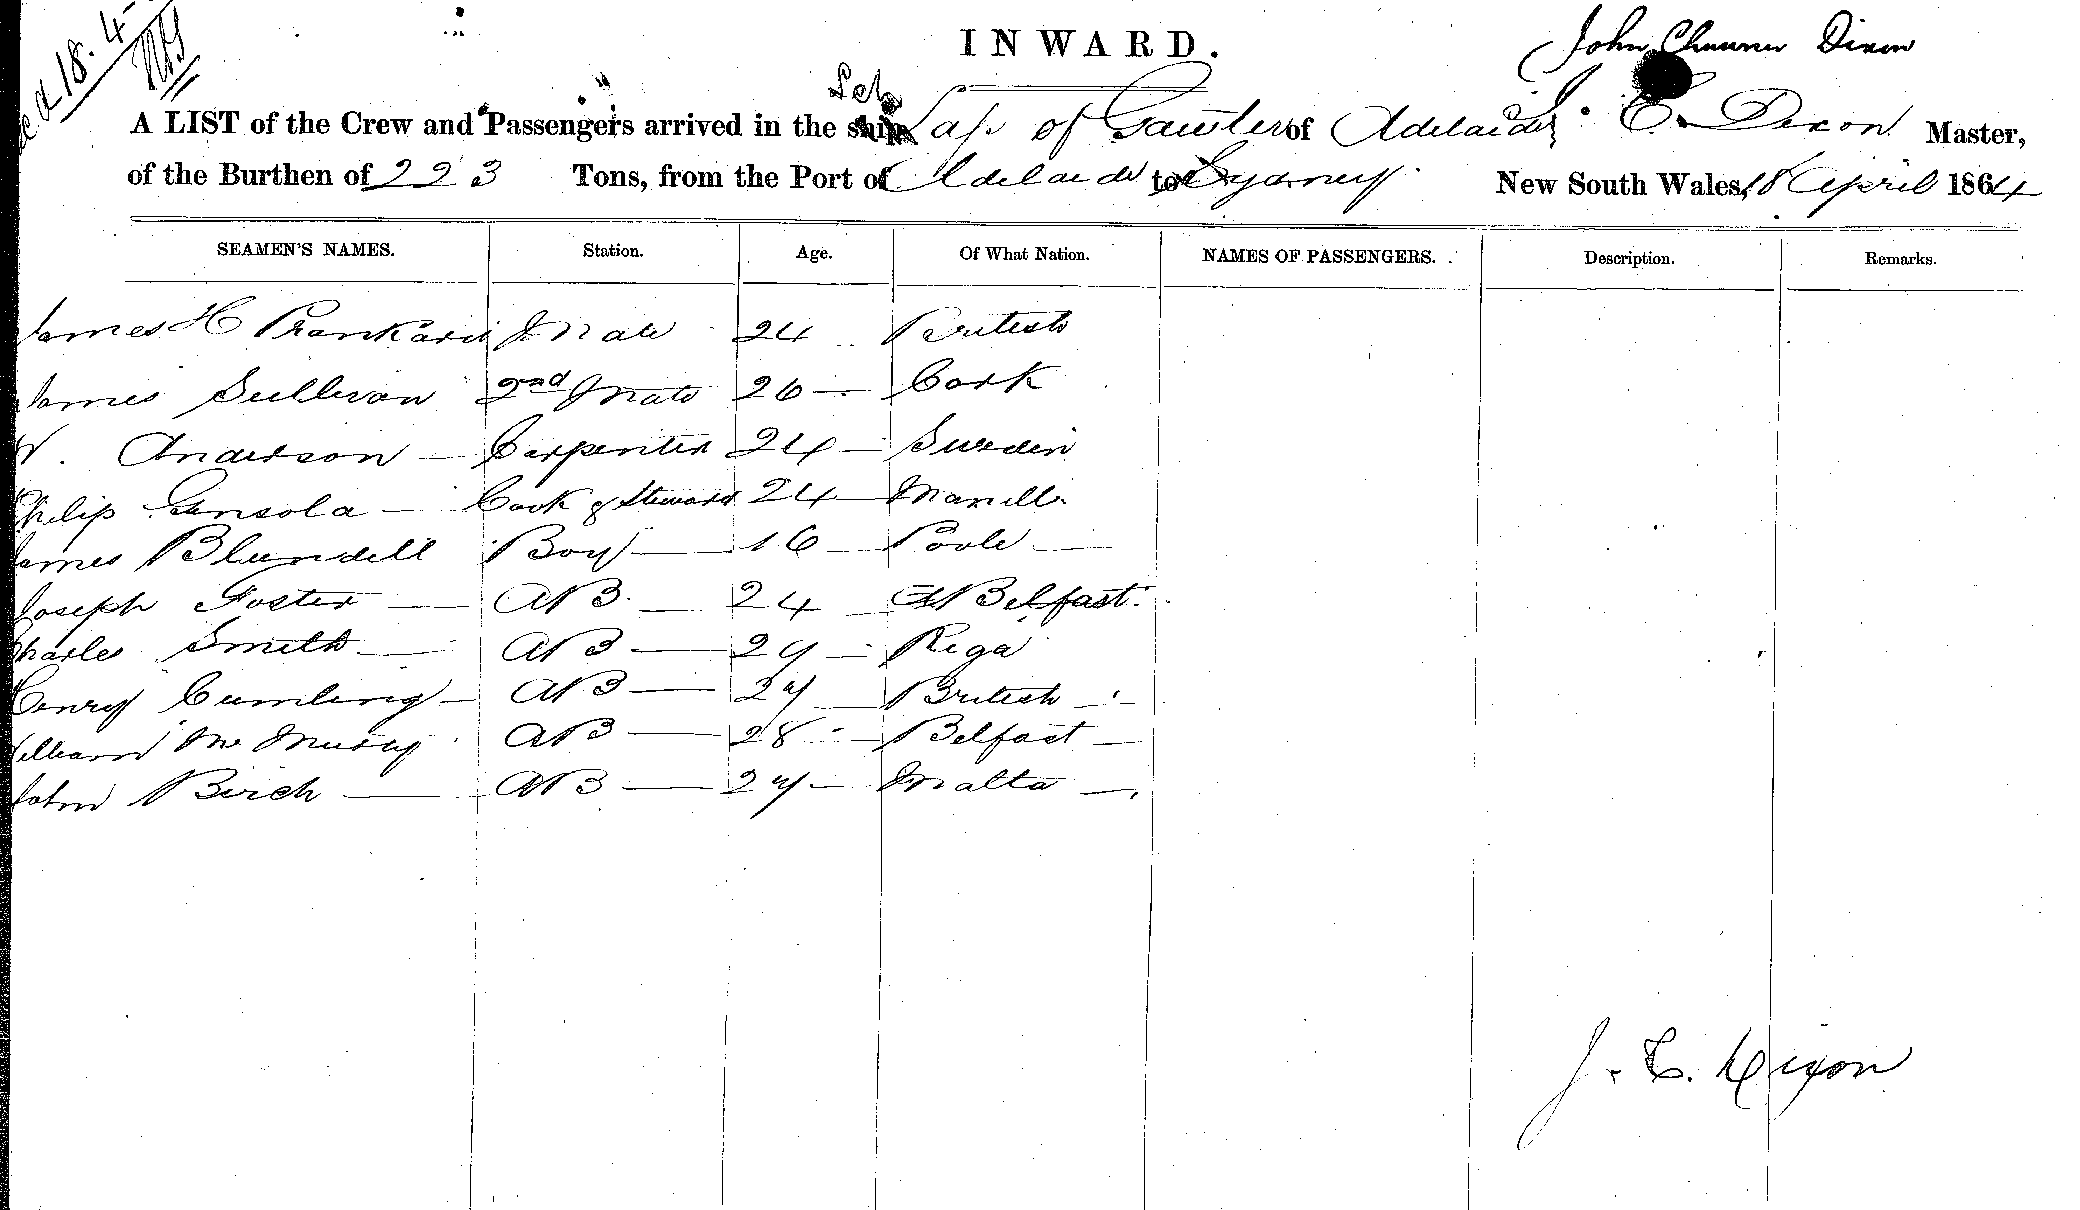 INWARD.
John Dixon
18. 4
Sch
A LIST of the Crew and Passengers arrived in the ship Lass of Gawler of Adelaide J. C. Dixon Master,
of the Burthen of 223 Tons, from the Port of Adelaide to Sydney New South Wales, 18 April 1864
SEAMEN'S NAMES. Station. Age. Of What Nation. NAMES OF PASSENGERS. Description. Remarks.
James H Prankard Mate 24 British
James Sullivan 2nd Mate 26 Cork
W. Anderson Carpenter 24 Sweden
Philip Cook & Steward 24 Manilla
James Blundell Boy 16 Poole
Joseph Foster AB 24 Belfast
Charles Smith AB 29 Riga
Henry Cumling AB 27 British
William Mc Murray AB 28 Belfast
John Birch AB 27 Malta
J. C. Dixon